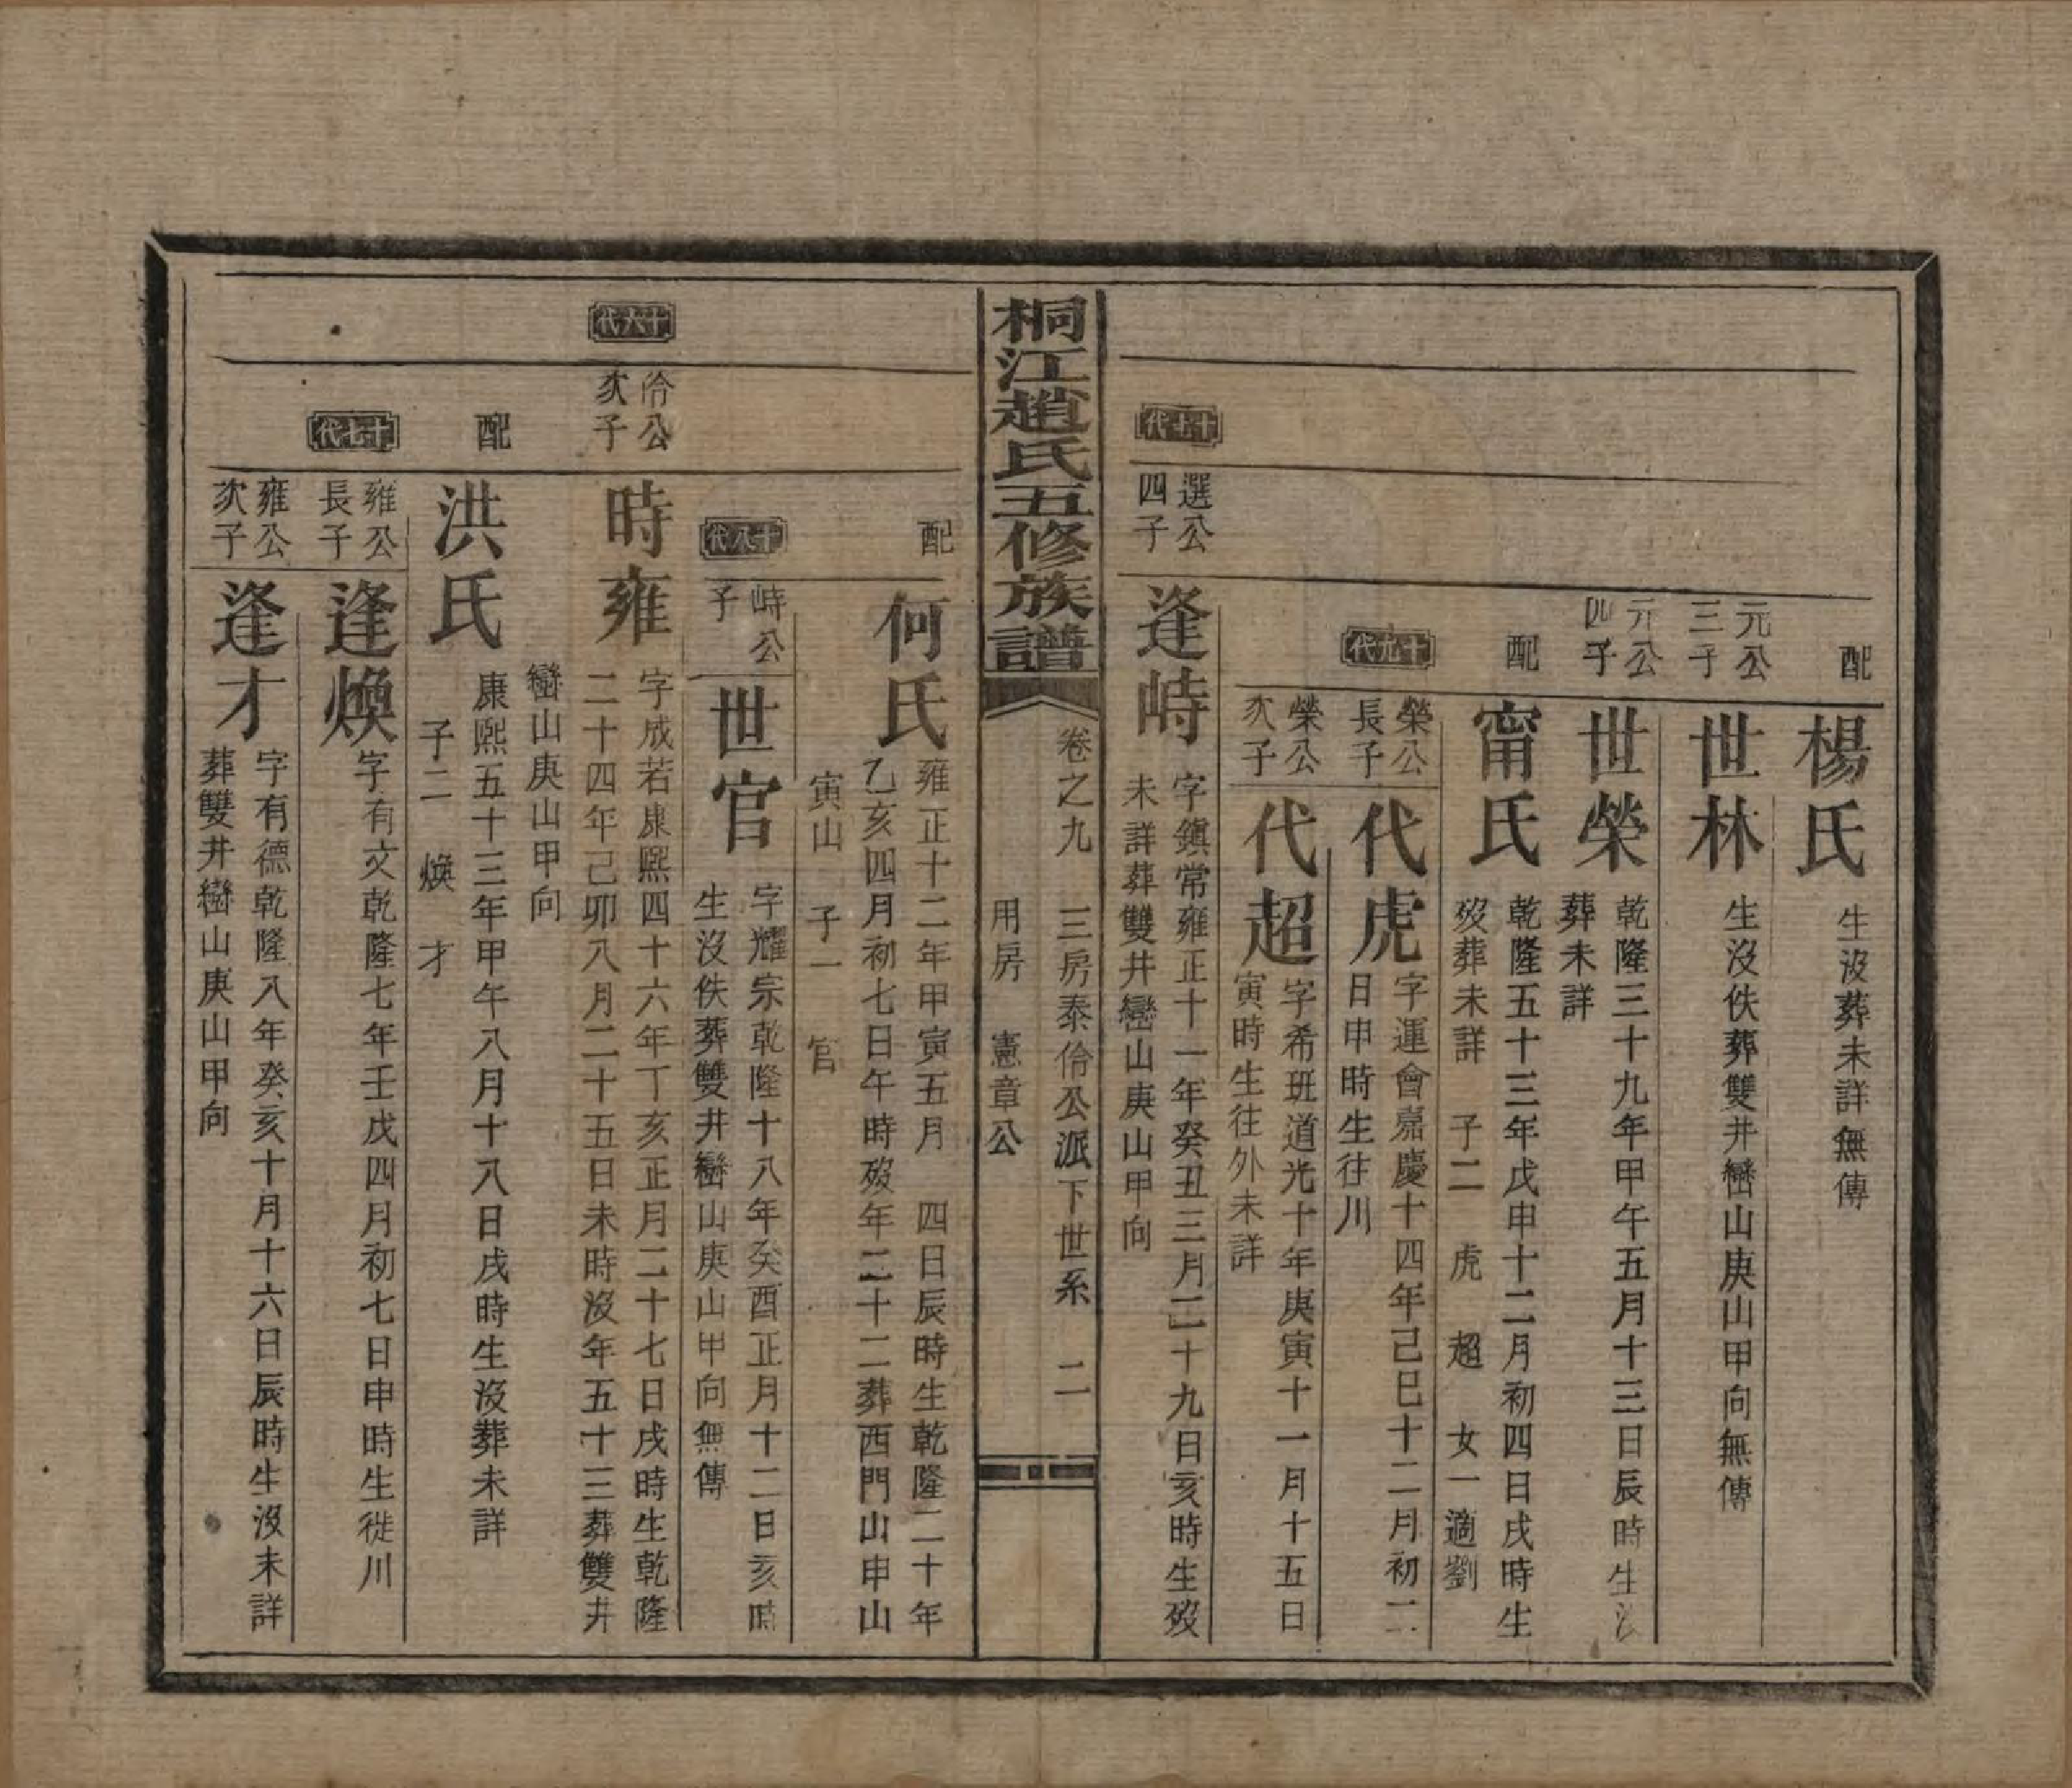 配
楊氏
生沒葬未詳無傳
元公
三子
世林
生沒佚葬雙井巒山庚山甲向無傳
元公
四子
世榮
乾隆三十九年甲午五月十三日辰時生沒
葬未詳
配
甯氏
乾隆五十三年戊申十二月初四日戌時生
歿葬未詳 子二 虎 超 女一適劉
十九代
榮公
長子
代虎
字運會嘉慶十四年己巳十二月初二
日申時生往川
榮公
次子
代超
字希班道光十年庚寅十一月十五日
寅時生往外未詳
十七代
選公
四子
逢峙
字鎮常雍正十一年癸丑三月二十九日亥時生歿
未詳葬雙井巒山庚山甲向
桐江趙氏五修族譜
卷之九 三房泰伶公派下世系 二
用房 憲章公
配
何氏
雍正十二年甲寅五月 四日辰時生乾隆二十年
乙亥四月初七日午時歿年二十二葬西門山申山
寅山 子一 官
十八代
峙公
子
世官
字耀宗乾隆十八年癸酉正月十二日亥時
生沒佚葬雙井巒山庚山甲向無傳
十六代
伶公
次子
時雍
字成若康熙四十六年丁亥正月二十七日戌時生乾隆
二十四年己卯八月二十五日未時沒年五十三葬雙井
巒山庚山甲向
配
洪氏
康熙五十三年甲午八月十八日戌時生沒葬未詳
子二 煥 才
十七代
雍公
長子
逢煥
字有文乾隆七年壬戌四月初七日申時生徙川
雍公
次子
逢才
字有德乾隆八年癸亥十月十六日辰時生沒未詳
葬雙井巒山庚山甲向